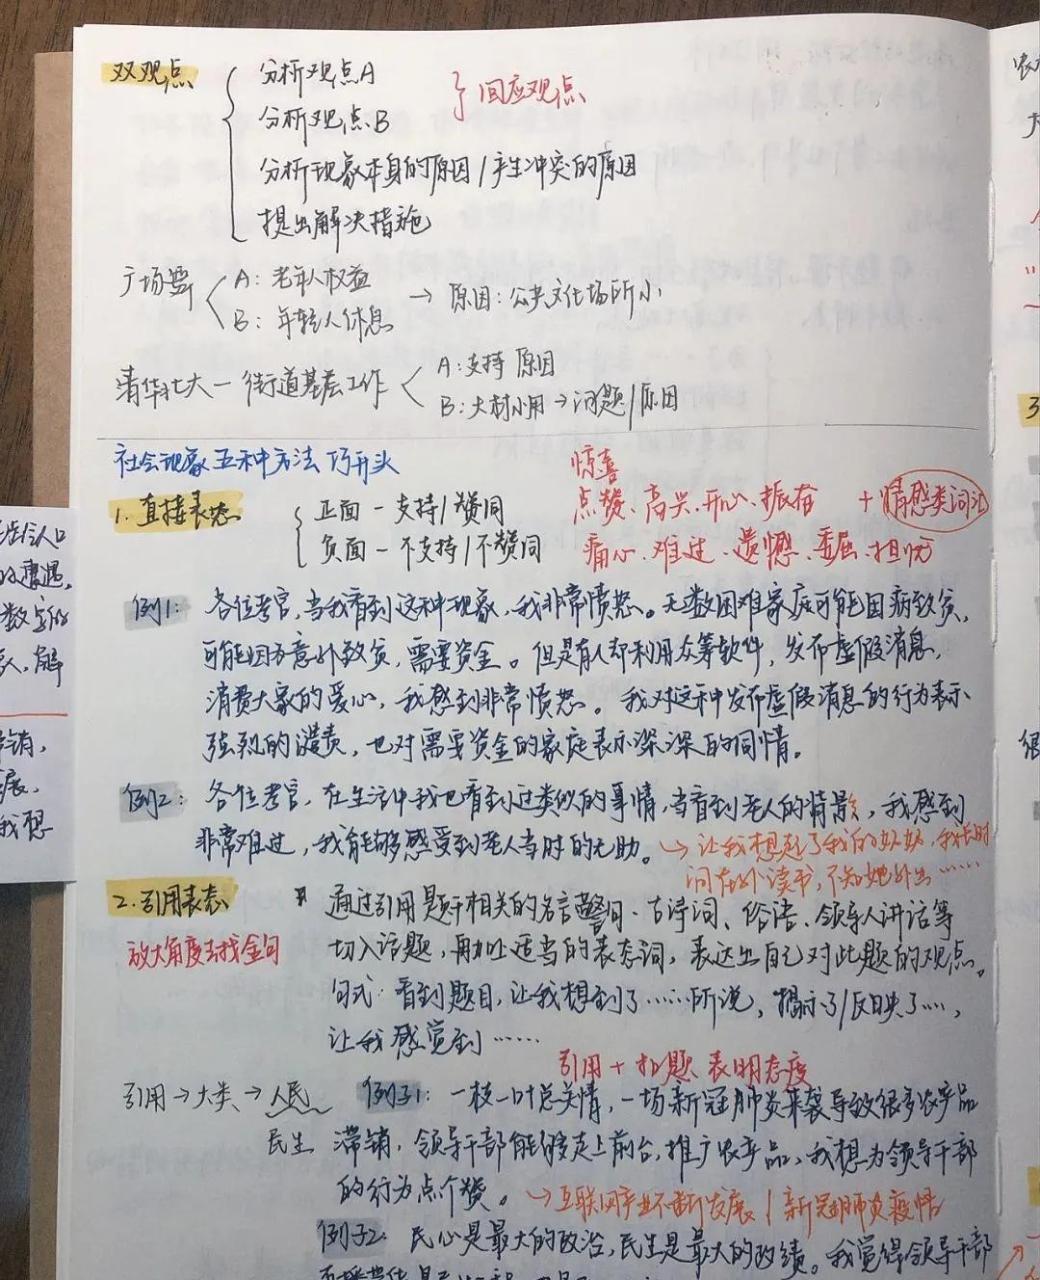 双观点
分析观点A
分析观点B
} 回应观点
分析现象本身的原因/产生冲突的原因
提出解决措施
广场舞
A: 老年人权益
B: 年轻人休息
→ 原因:公共文化场所小
清华北大一街道基层工作
A:支持 原因
B:大材小用→问题/原因
社会现象五种方法巧开头
1. 直接表态
正面-支持/赞同
负面-不支持/不赞同
惊喜
点赞、高兴、开心、振奋 + 情感类词汇
痛心、难过、遗憾、委屈、担忧
例1: 各位考官,当我看到这种现象,我非常愤怒。无数困难家庭可能因病致贫,
可能因为意外致贫,需要资金。但是有人却利用众筹软件,发布虚假消息,
消费大家的爱心,我感到非常愤怒。我对这种发布虚假消息的行为表示
强烈的谴责,也对需要资金的家庭表示深深的同情。
例2: 各位考官,在生活中我也看到过类似的事情,当看到老人的背影,我感到
非常难过,我能够感受到老人当时的无助。
→让我想起了我的奶奶,我长时
间在外读书,不知她外出……
2. 引用表态
放大角度去找金句
通过引用题干相关的名言警句、古诗词、俗语、领导人讲话等
切入话题,再加上适当的表态词,表达出自己对此题的观点。
句式:看到题目,让我想到了……所说,揭示了/反映了…,
让我感觉到……
引用+扣题 表明态度
引用→大类→人民
民生
例子1: 一枝一叶总关情,一场新冠肺炎来袭导致很多农产品
滞销,领导干部能够走上前台,推广农产品,我想为领导干部
的行为点个赞。
→互联网产业不断发展/新冠肺炎疫情
例子2: 民心是最大的政治,民生是最大的政绩。我觉得领导干部
活人口
遭遇,
数字
人,解
销,
展,
我想